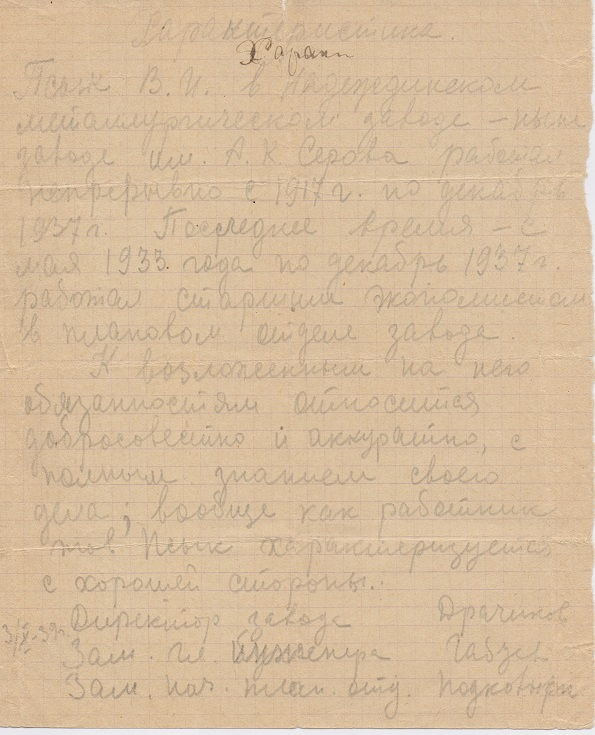 Характеристика.
Характ
Псык В. И. в Надеждинском
металлургическом заводе – ныне
заводе им. А. К. Серова работал
непрерывно с 1917 г. по декабрь
1937 г. Последнее время – с
мая 1933 года по декабрь 1937 г.
работал старшим экономистом
в плановом отделе завода.
К возложенным на него
обязанностям относится
добросовестно и аккуратно, с
полным знанием своего
дела; вообще как работник
тов. Псык характеризуется
с хорошей стороны.
Директор завода Драчиков
3/X-39 г.
Зам. гл. инженера
Зам. нач. план. отд.